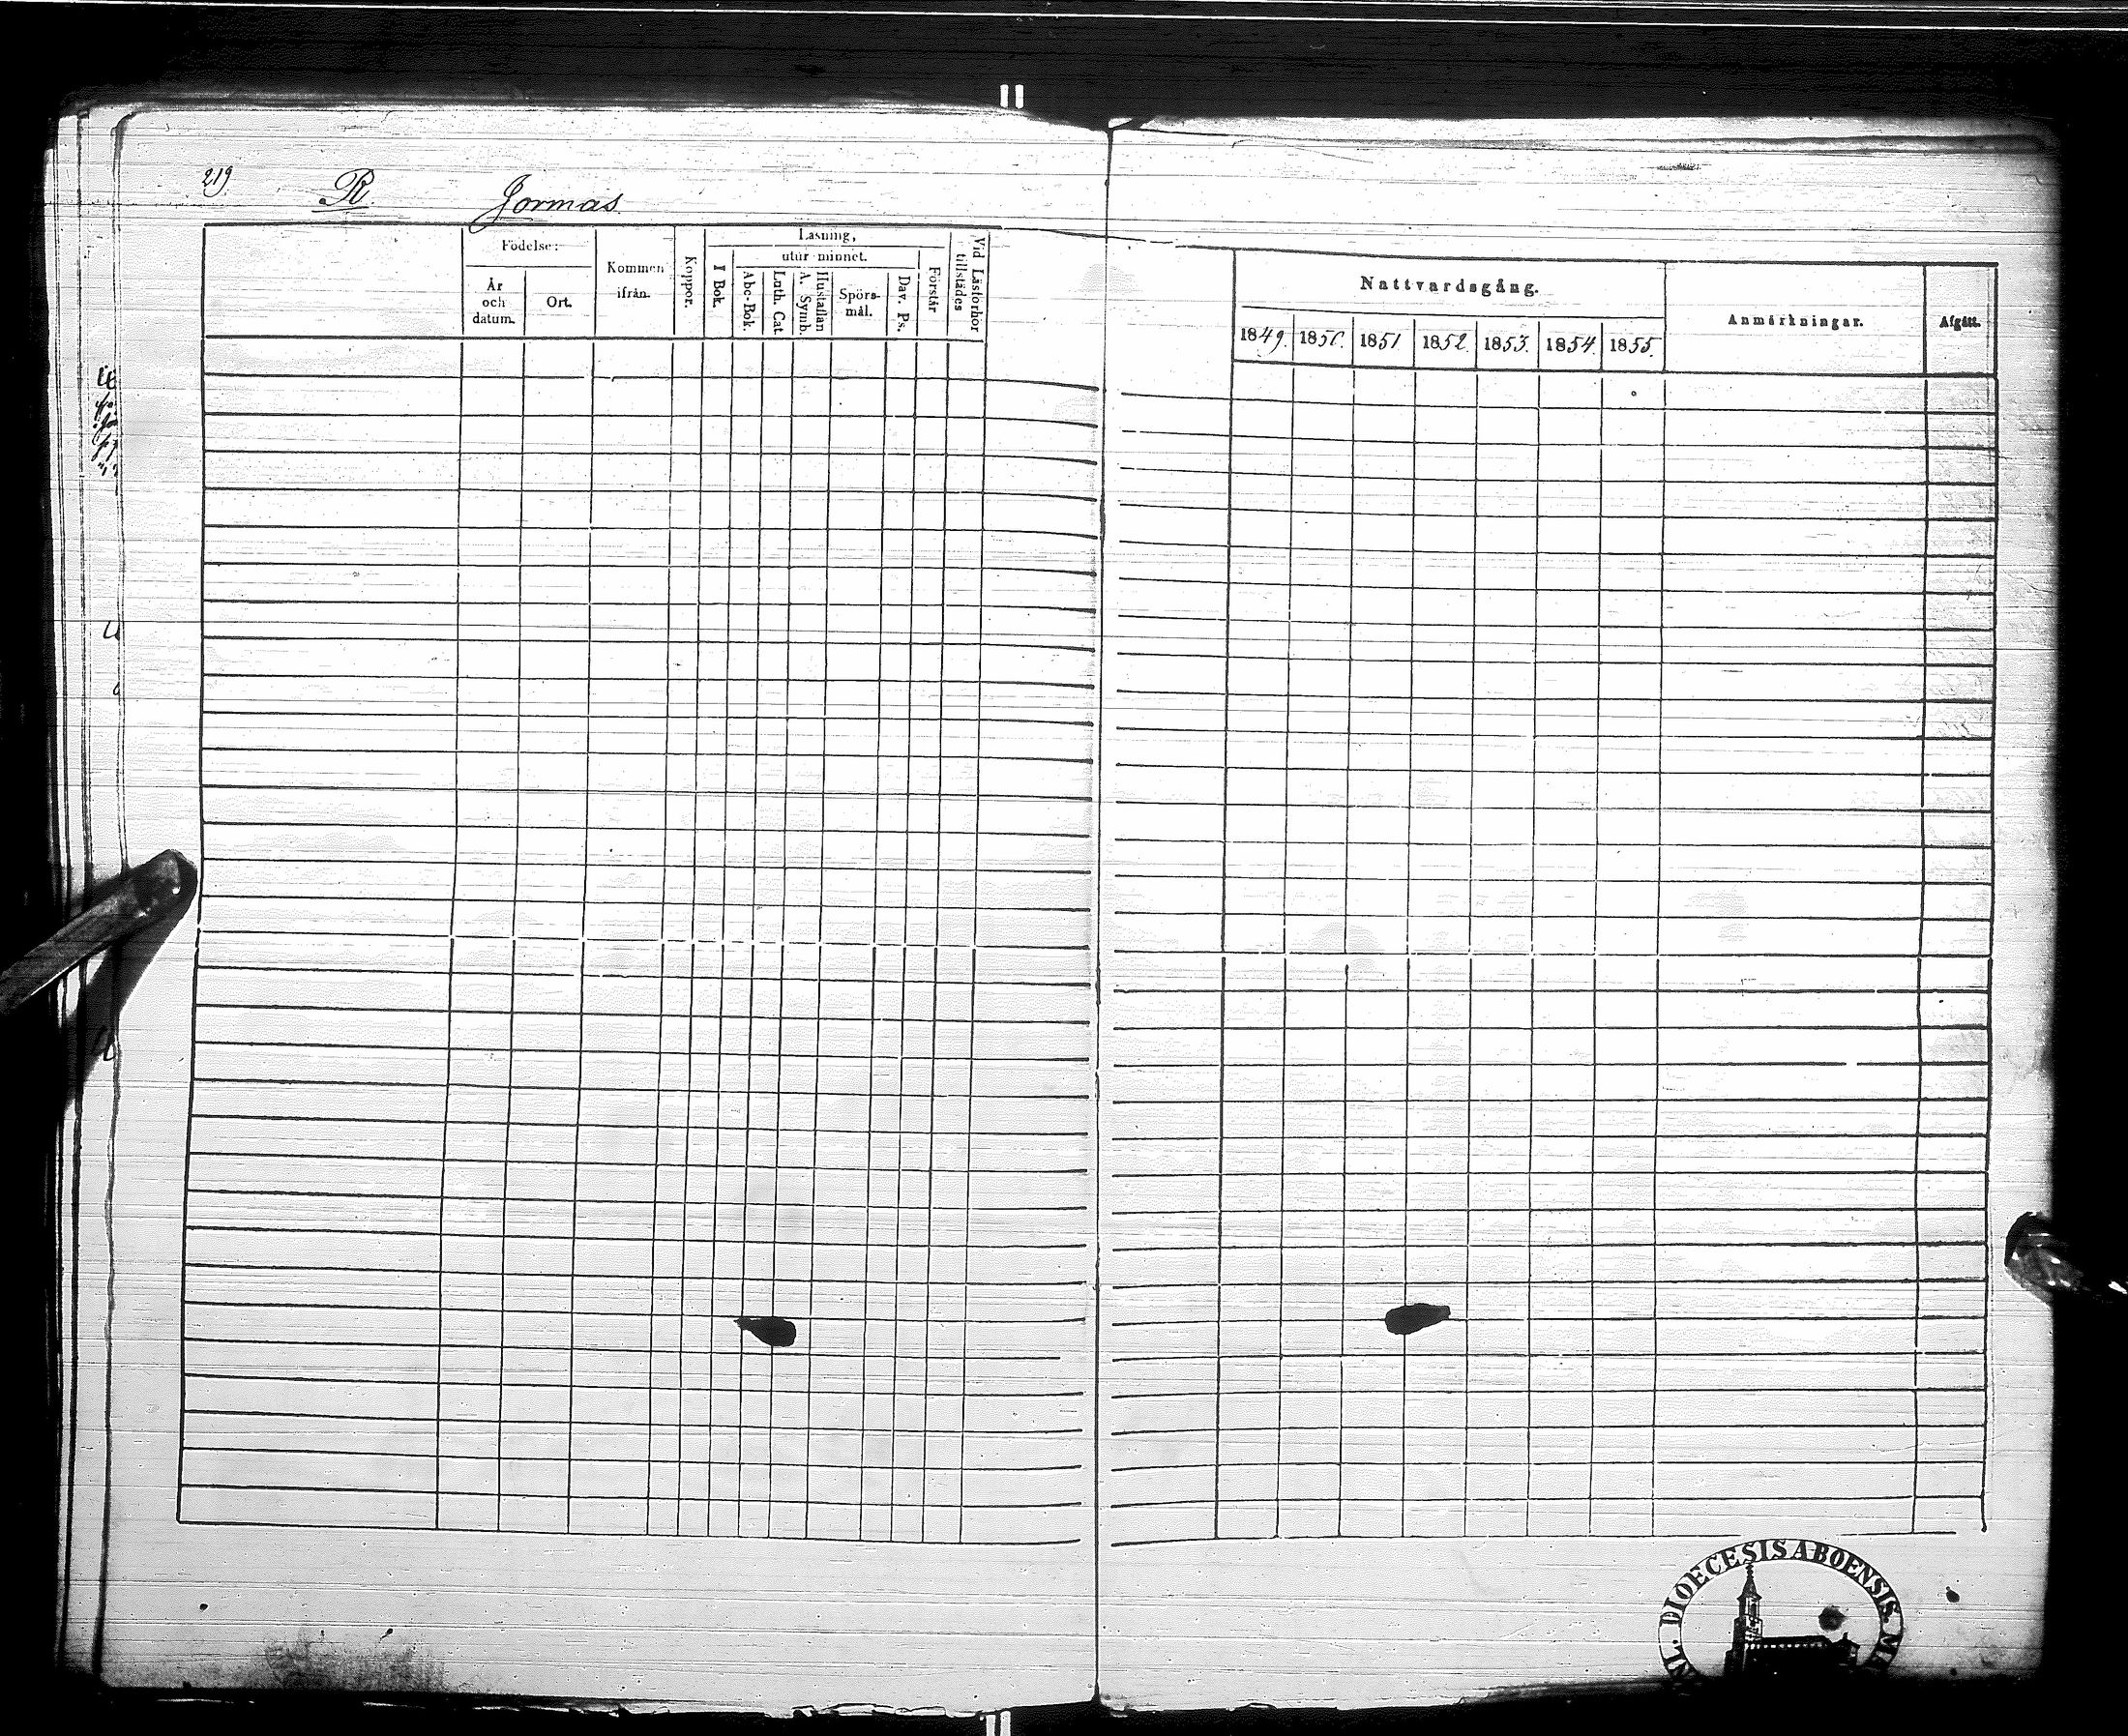 219
R. Jormas.
Födelse:
År och datum.
Ort.
Kommen ifrån.
Koppor.
Läsning,
I Bok.
utur minnet.
Abc-Bok.
Luth. Cat.
Hustaflan A. Symb.
Spörs-mål.
Dav. Ps.
Förstår
Vid Läsförhör tillstädes
Nattvardsgång.
1849. 1850. 1851 1852. 1853. 1854. 1855.
Anmärkningar.
Afgått.
DIOECESIS ABOENSIS.